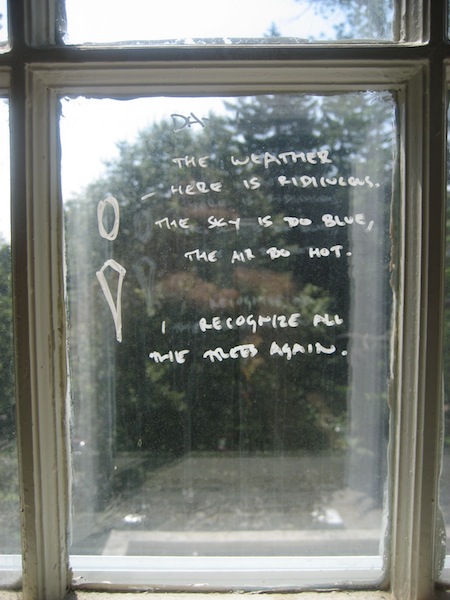 DA
THE WEATHER
HERE IS RIDICULOUS.
THE SKY IS SO BLUE,
THE AIR SO HOT.
I RECOGNIZE ALL
THE TREES AGAIN.